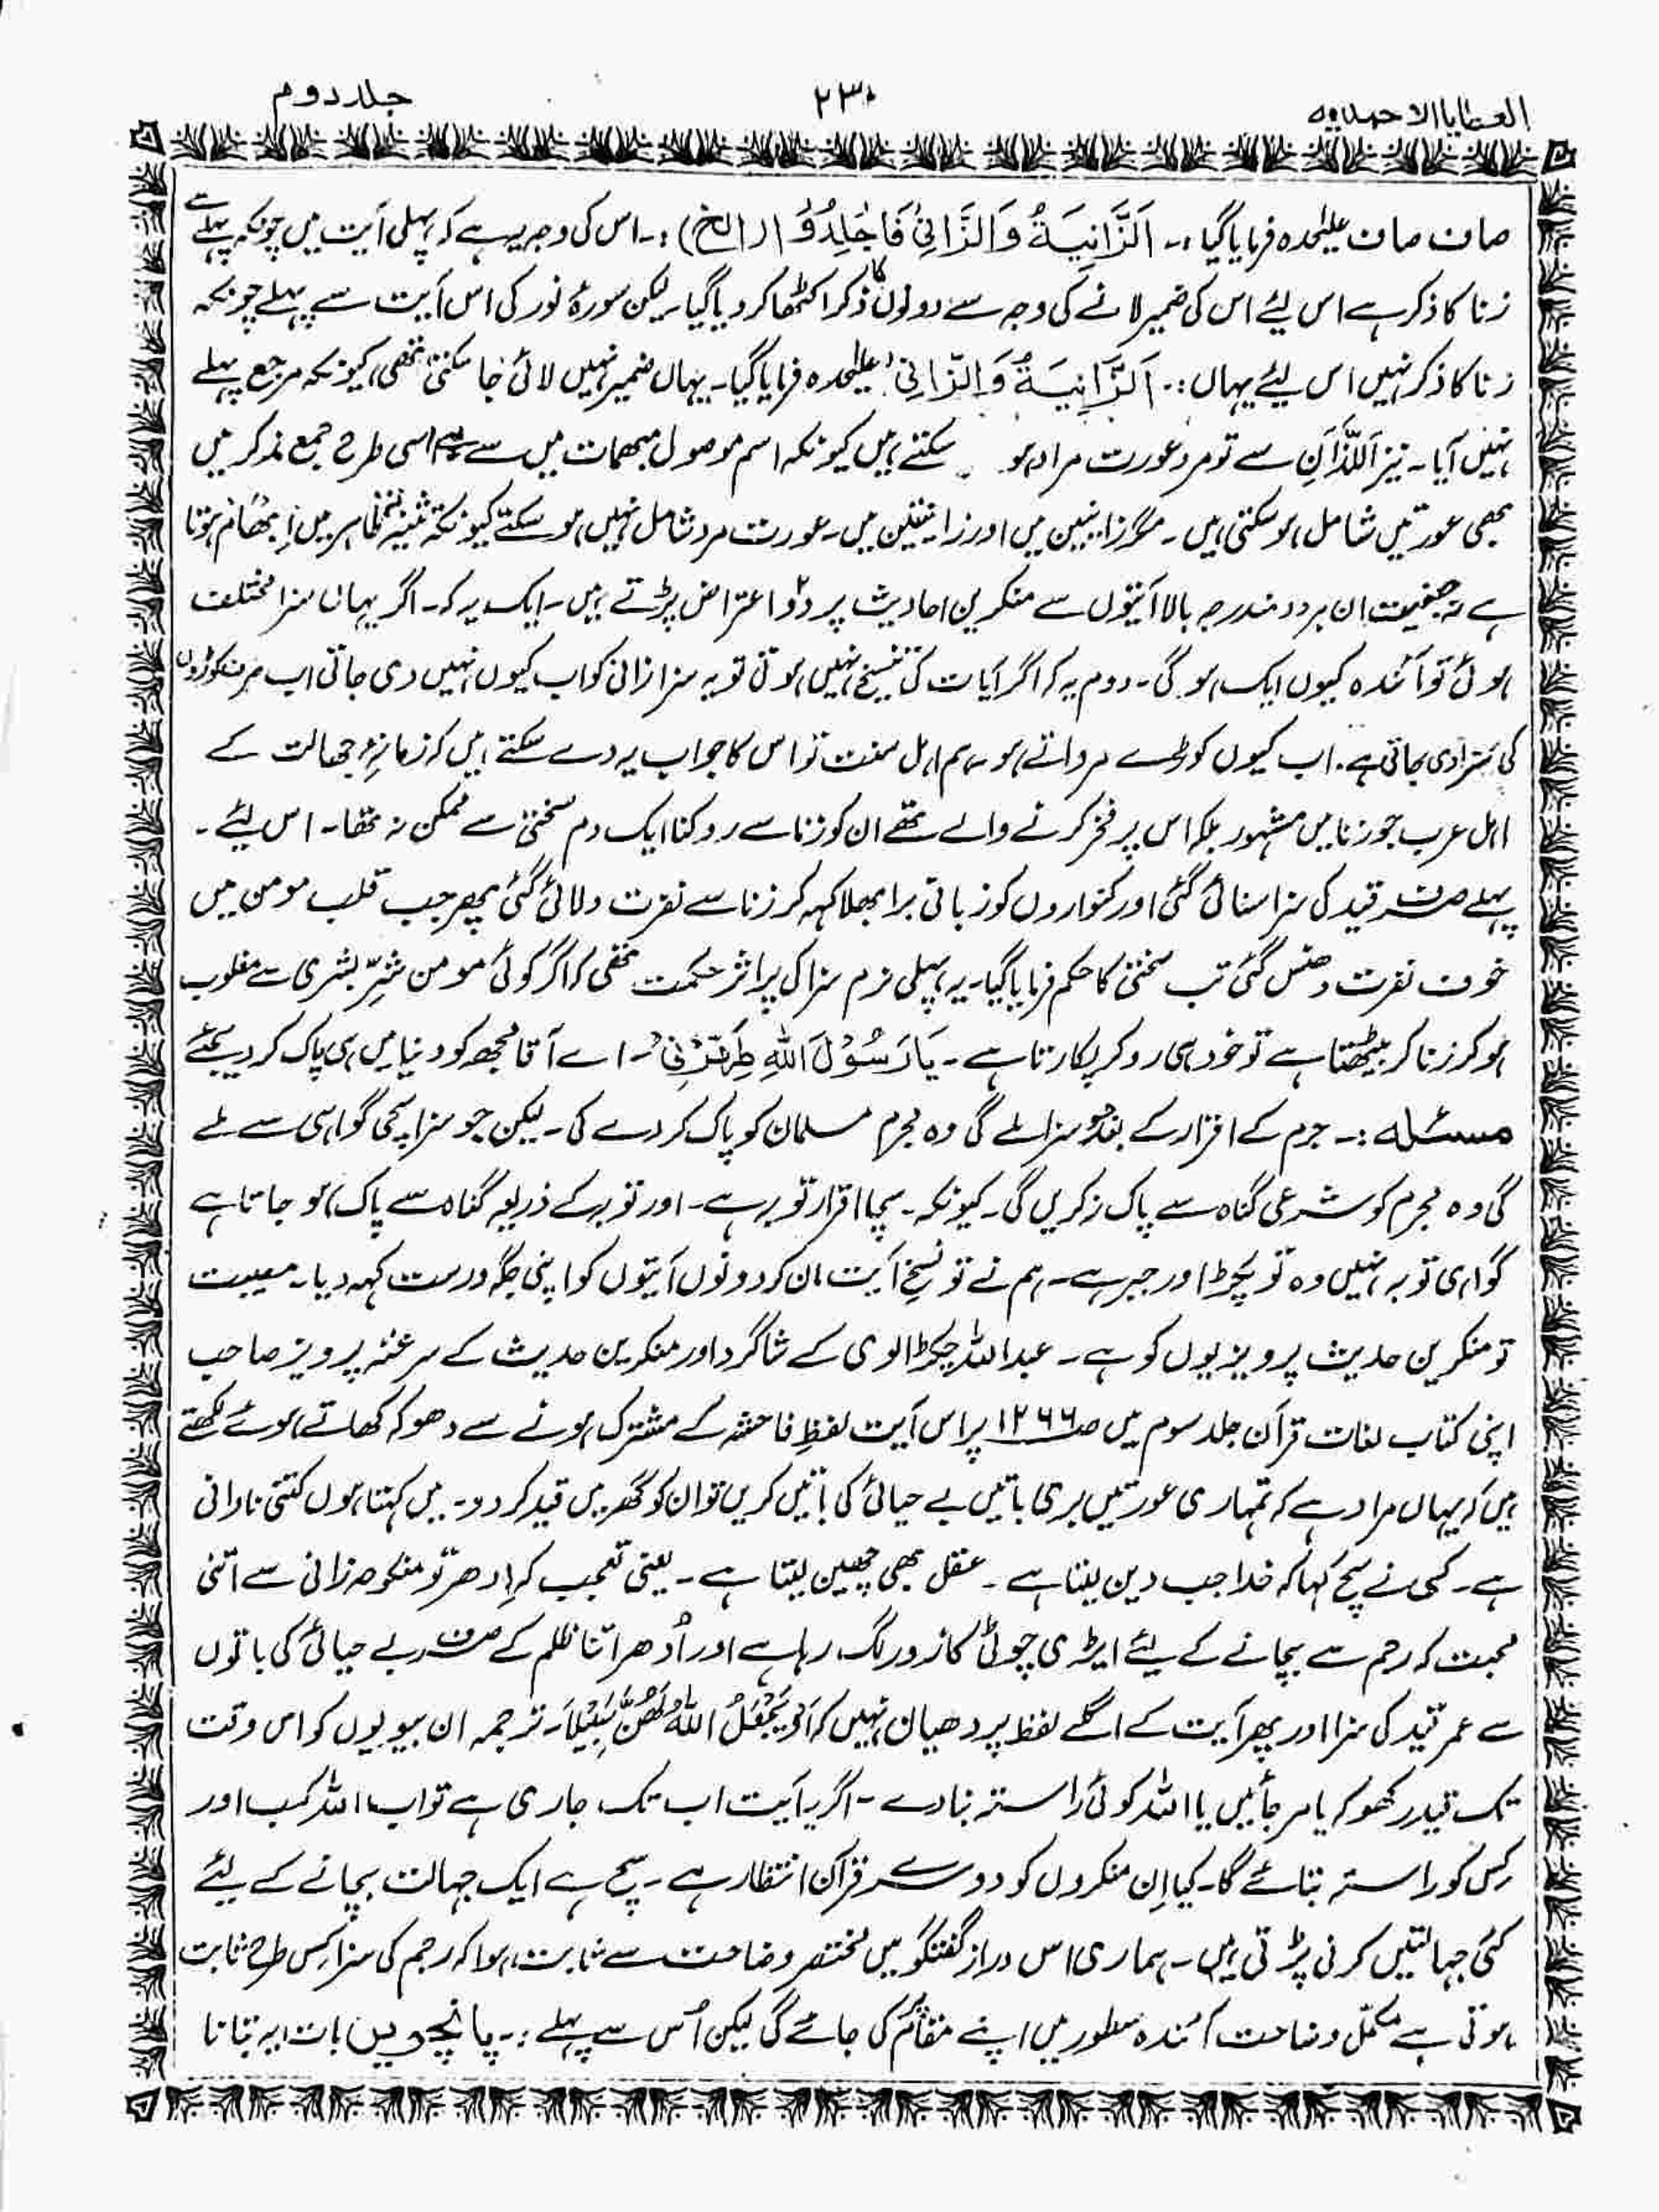 العطایا الاحمدیہ ۲۳۰ جلد دوم
صاف صاف علیٰحدہ فرمایا گیا :۔ اَلزَّانِيَةُ وَالزَّانِيْ فَاجْلِدُوْا (الخ) :۔ اس کی وجہ یہ ہے کہ پہلی آیت میں چونکہ پہلے سے
زنا کا ذکر ہے اس لیئے اس کی ضمیر لانے کی وجہ سے دونوں کا ذکر اکٹھا کر دیا گیا۔ لیکن سورۂ نور کی اس آیت سے پہلے چونکہ
زنا کا ذکر نہیں اس لیئے یہاں :۔ اَلزَّانِيَةُ وَالزَّانِيْ علیٰحدہ فرمایا گیا۔ یہاں ضمیر نہیں لائی جا سکتی تھی، کیونکہ مرجع پہلے
نہیں آیا۔ نیز اَللَّذَانِ سے تو مرد عورت مراد ہو سکتے ہیں کیونکہ اسم موصول مبھمات میں سے ہے اسی طرح جمع مذکر میں
بھی عورتیں شامل ہو سکتی ہیں۔ مگر زانیین میں اور زانیتین میں۔ عورت مرد شامل نہیں ہو سکتے کیونکہ تثنیہ ظاہر میں اِبھَام ہوتا
ہے نہ حقیقت ان ہر دو مندرجہ بالا آیتوں سے منکرین احادیث پر دو اعتراض پڑتے ہیں۔ ایک یہ کہ۔ اگر یہاں سزا مختلف
ہوئی تو آئندہ کیوں ایک ہو گی۔ دوم یہ کہ اگر آیات کی تنسیخ نہیں ہوتی تو یہ سزا زانی کو اب کیوں نہیں دی جاتی اب صرف کوڑوں
کی سزا دی جاتی ہے۔ اب کیوں کوڑے مرواتے ہو، ہم اہل سنت تو اس کا جواب یہ دے سکتے ہیں کہ زمانہء جھالت کے
اہل عرب جو زنا میں مشہور بلکہ اس پر فخر کرنے والے تھے ان کو زنا سے روکنا ایک دم سختی سے ممکن نہ تھا۔ اس لیئے۔
پہلے صرف قید کی سزا سنائی گئی اور کنواروں کو زبانی برا بھلا کہہ کر زنا سے نفرت دلائی گئی پھر جب قلب مومن میں
خوف نفرت دھنس گئی تب سختی کا حکم فرمایا گیا۔ یہ پہلی نرم سزا کی پر اثر حکمت تھی کہ اگر کوئی مومن شرِّ بشری سے مغلوب
ہو کر زنا کر بیٹھتا ہے تو خود ہی رو کر پکارتا ہے۔ يَا رَسُوْلَ اللهِ طَهِّرْنِيْ۔ اے آقا مجھ کو دنیا میں ہی پاک کر دیجئے
مسئلہ :۔ جرم کے اقرار کے بعد جو سزا ملے گی وہ مجرم مسلمان کو پاک کر دے کی۔ لیکن جو سزا سچی گواہی سے ملے
گی وہ مجرم کو شرعی گناہ سے پاک نہ کریں گی۔ کیونکہ۔ سچا اقرار توبہ ہے۔ اور توبہ کے ذریعہ گناہ سے پاک ہو جاتا ہے
گواہی توبہ نہیں وہ تو پکڑ اور جبر ہے۔ ہم نے تو نسخ آیت مان کر دونوں آیتوں کو اپنی جگہ درست کہہ دیا۔ مصیبت
تو منکرین حدیث پرویزیوں کو ہے۔ عبداللہ چکڑالوی کے شاگرد اور منکرین حدیث کے سرغنہ پرویز صاحب
اپنی کتاب لغات قرآن جلد سوم میں صـ ۱۲۶۶ پر اس آیت لفظِ فاحشہ کے مشترک ہونے سے دھوکہ کھاتے ہوئے لکھتے
ہیں کہ یہاں مراد ہے کہ تمہاری عورتیں بری باتیں بے حیائی کی باتیں کریں تو ان کو گھر میں قید کر دو۔ میں کہتا ہوں کتنی نادانی
ہے۔ کسی نے سچ کہا کہ خدا جب دین لیتا ہے۔ عقل بھی چھین لیتا ہے۔ یعنی تعجب کہ اِدھر تو منکوحہ زانی سے اتنی
محبت کہ رجم سے بچانے کے لیئے ایڑی چوٹی کا زور لگ رہا ہے اور اُدھر اتنا ظلم کے صرف بے حیائی کی باتوں
سے عمر قید کی سزا اور پھر آیت کے اگلے لفظ پر دھیان نہیں کہ اَوْ يَجْعَلَ اللهُ لَهُنَّ سَبِيْلًا۔ ترجمہ ان بیویوں کو اس وقت
تک قید رکھو کہ یا مر جائیں یا اللہ کوئی راستہ بنا دے۔ اگر یہ آیت اب تک جاری ہے تو اب اللہ کب اور
کِس کو راستہ بتائے گا۔ کیا اِن منکروں کو دوسرے قرآن انتظار ہے۔ سچ ہے ایک جہالت بچانے کے لیئے
کئی جہالتیں کرنی پڑتی ہیں۔ ہماری اس دراز گفتگو میں مختصر وضاحت سے ثابت ہوا کہ رجم کی سزا کِس طرح ثابت
ہوتی ہے مکمّل وضاحت آئندہ سطور میں اپنے مقام کی جائے گی لیکن اُس سے پہلے :۔ پانچویں بات یہ بتانا